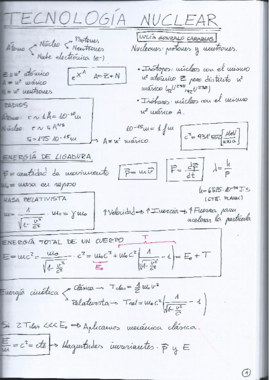 TECNOLOGÍA NUCLEAR
LUCÍA GONZALO
Átomo
Núcleo
Protones
Neutrones
Nube electrónica (e-)
Nucleones: protones y neutrones.
Z ≡ nº atómico
A ≡ nº másico
A = Z + N
· Isótopos: núcleos con el mismo
nº atómico Z pero distinto nº
másico
· Isóbaros: núcleos con el mismo
nº másico A.
RADIOS
Átomo
Núcleo: r ~
A ≡ nº másico
ENERGÍA DE LIGADURA
P ≡ cantidad de movimiento
m₀ ≡ masa en reposo
h = 6'625·10⁻³⁴ J·s
(CTE. PLANCK)
MASA RELATIVISTA
↑Velocidad → ↑Inercia → ↑Fuerza para
acelerar la partícula
ENERGÍA TOTAL DE UN CUERPO
E = mc² = m₀/√(1-v²/c²) · c² = m₀c² + m₀c² (1/√(1-v²/c²) - 1) = E₀ + T
Energía cinética
Clásica → T = ½ m₀v²
Relativista → T = m₀c² (1/√(1-v²/c²) - 1)
<<< E₀ → Aplicamos mecánica clásica.
E/m = c² = cte → Magnitudes invariantes: P y E
1